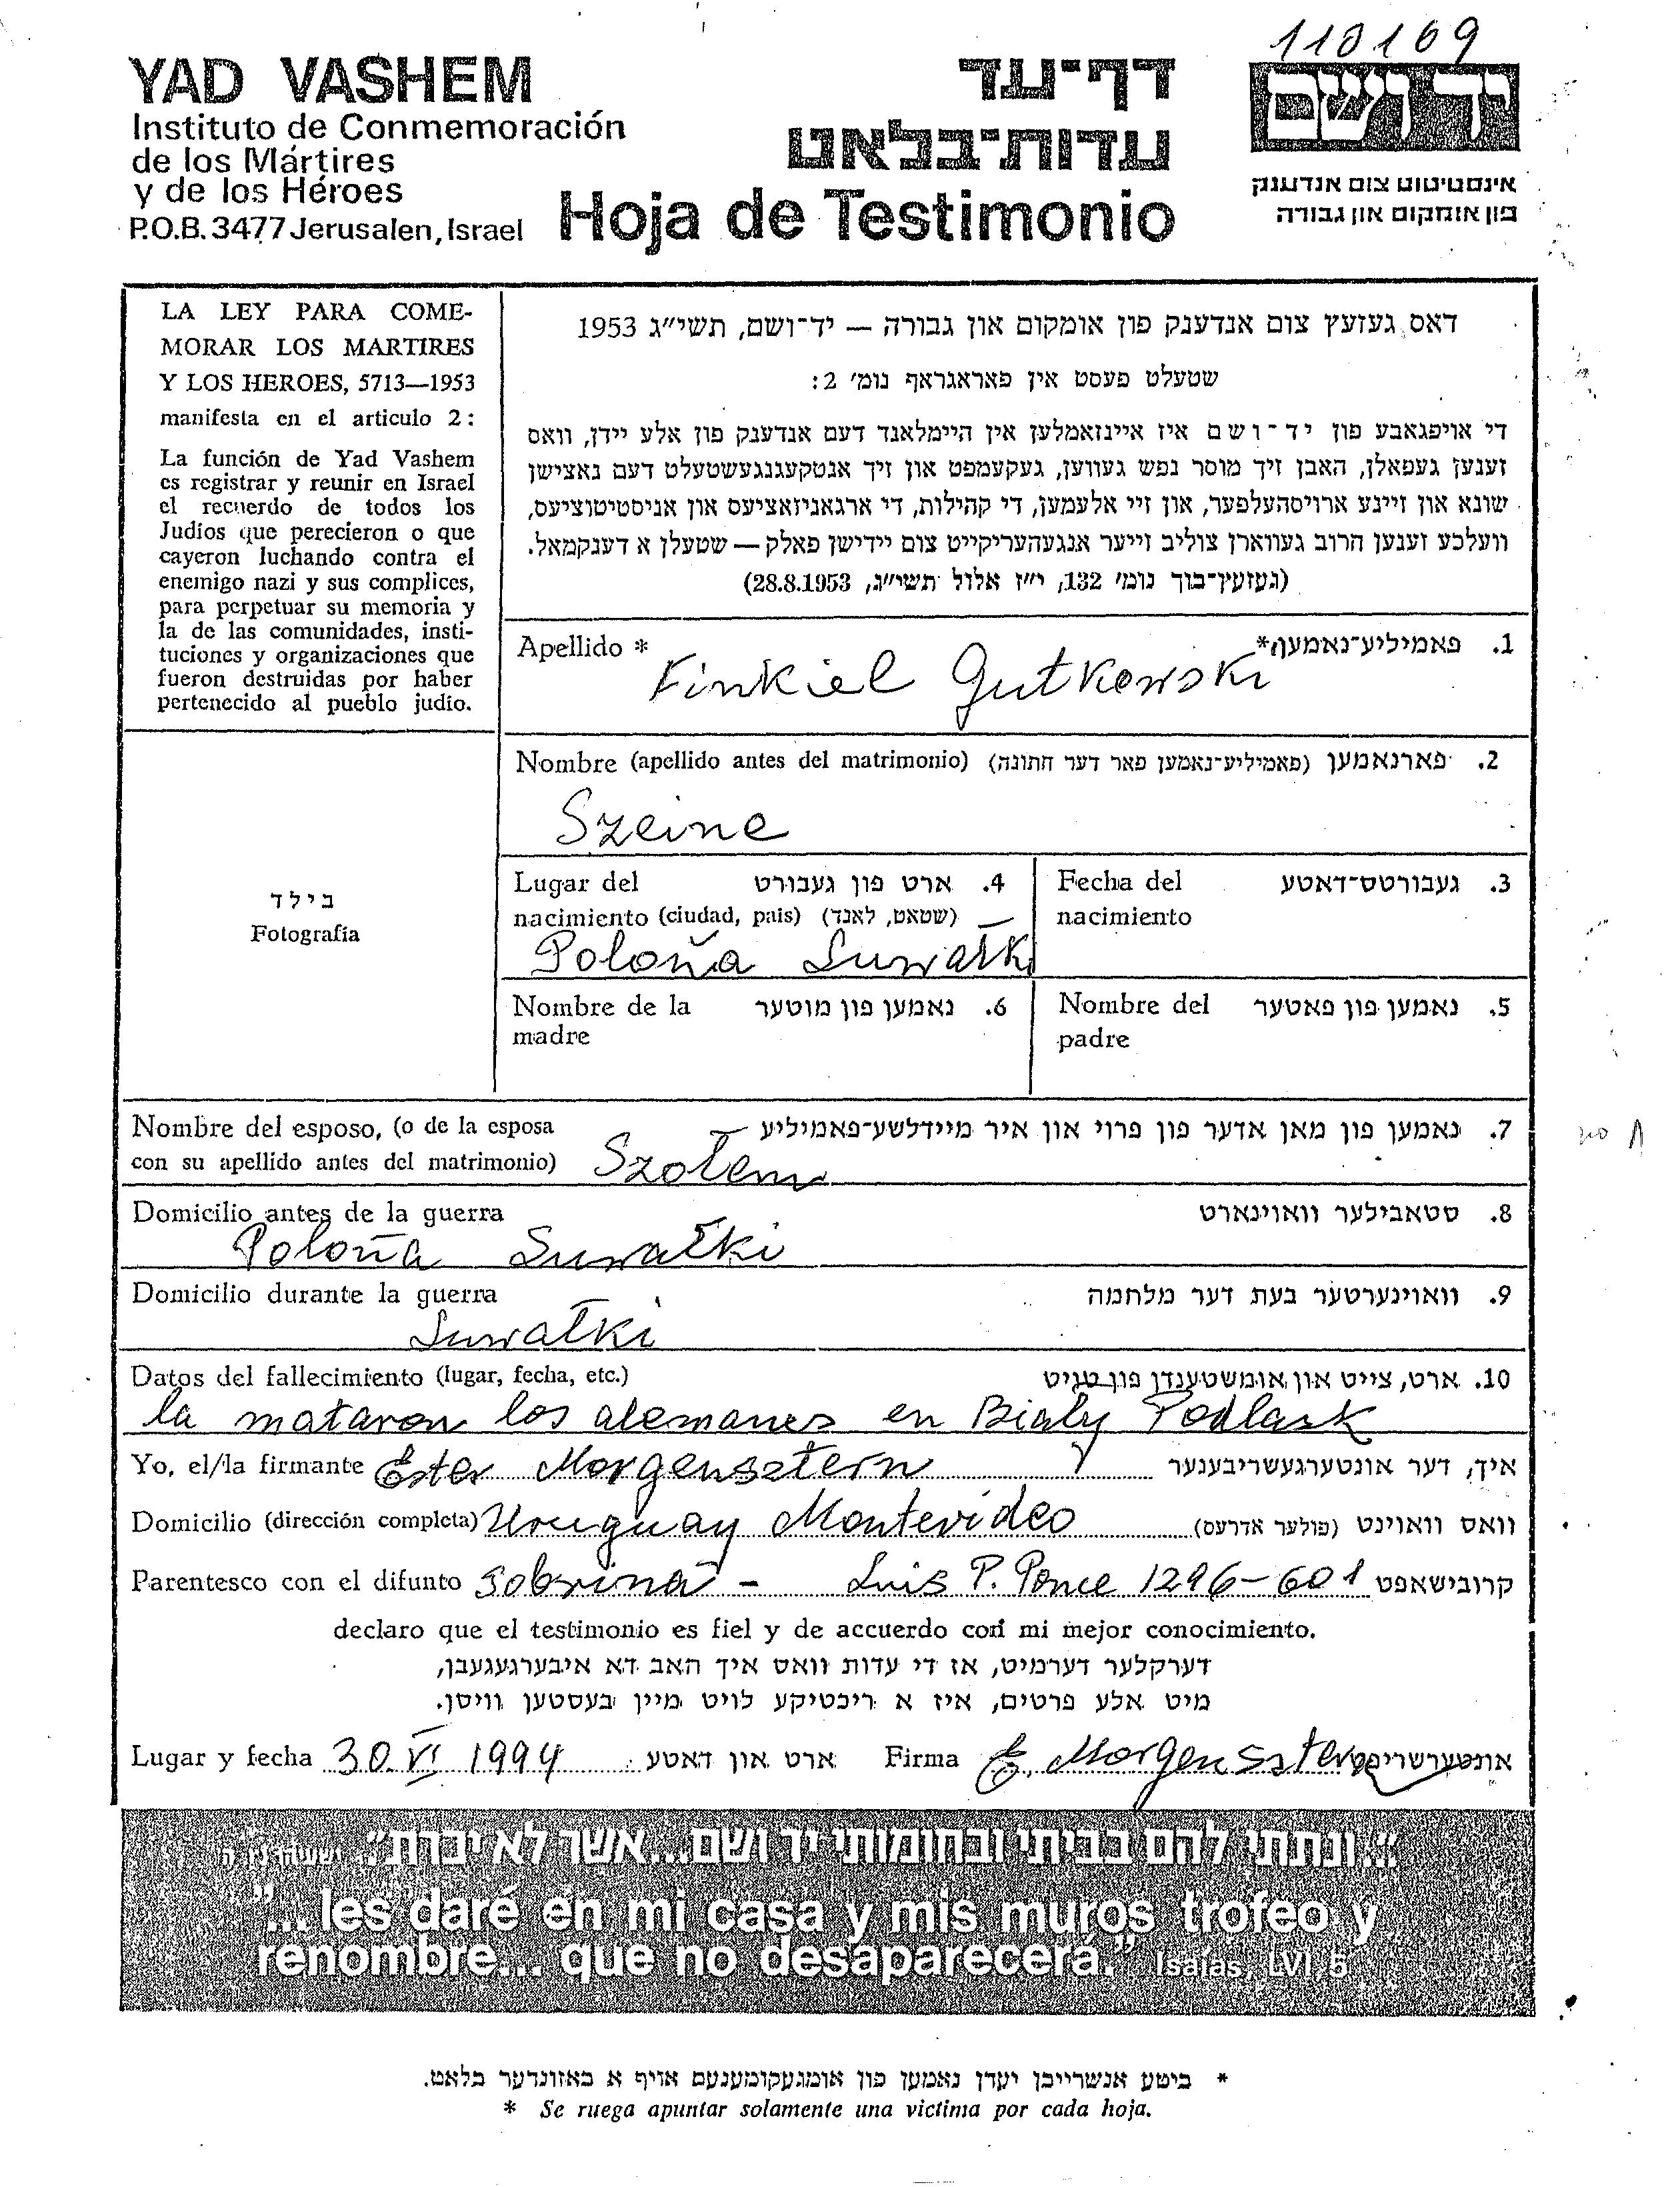 110169
YAD VASHEM
Instituto de Conmemoración
de los Mártires
y de los Héroes
P.O.B. 3477 Jerusalen, Israel
דף־עד
עדות־בלאט
Hoja de Testimonio
יד ושם
אינסטיטוט צום אנדענק
פון אומקום און גבורה
LA LEY PARA COME-
MORAR LOS MARTIRES
Y LOS HEROES, 5713—1953
manifesta en el articulo 2:
La función de Yad Vashem
es registrar y reunir en Israel
el recuerdo de todos los
Judíos que perecieron o que
cayeron luchando contra el
enemigo nazi y sus complices,
para perpetuar su memoria y
la de las comunidades, insti-
tuciones y organizaciones que
fueron destruidas por haber
pertenecido al pueblo judío.
דאס געזעץ צום אנדענק פון אומקום און גבורה — יד־ושם, תשי״ג 1953
שטעלט פעסט אין פאראגראף נומ׳ 2:
די אויפגאבע פון יד־ושם איז איינזאמלען אין היימלאנד דעם אנדענק פון אלע יידן, וואס
זענען געפאלן, האבן זיך מוסר נפש געווען, געקעמפט און זיך אנטקעגנגעשטעלט דעם נאצישן
שונא און זיינע ארויסהעלפער, און זיי אלעמען, די קהילות, די ארגאניזאציעס און אניסטיטוציעס,
וועלכע זענען הרוב געווארן צוליב זייער אנגעהעריקייט צום יידישן פאלק — שטעלן א דענקמאל.
(געזעץ־בוך נומ׳ 132, י״ז אלול תשי״ג, 28.8.1953)
Apellido * פאמיליע־נאמען* .1
Finkiel Gutkowski
Nombre (apellido antes del matrimonio) (פאמיליע־נאמען פאר דער חתונה) פארנאמען .2
Szeine
בילד
Fotografía
Lugar del ארט פון געבורט .4
nacimiento (ciudad, pais) (שטאט, לאנד)
Poloña Suwałki
Fecha del געבורטס־דאטע .3
nacimiento
Nombre de la נאמען פון מוטער .6
madre
Nombre del נאמען פון פאטער .5
padre
Nombre del esposo, (o de la esposa נאמען פון מאן אדער פון פרוי און איר מיידלשע־פאמיליע .7
con su apellido antes del matrimonio) Szołem
Domicilio antes de la guerra סטאבילער וואוינארט .8
Poloña Suwałki
Domicilio durante la guerra וואוינערטער בעת דער מלחמה .9
Suwałki
Datos del fallecimiento (lugar, fecha, etc.) ארט, צייט און אומשטענדן פון טויט .10
la mataron los alemanes en Biały Podlask
Yo, el/la firmante Ester Morgensztern איך, דער אונטערגעשריבענער
Domicilio (dirección completa) Uruguay Montevideo וואס וואוינט (פולער אדרעס)
Parentesco con el difunto sobrina - Luis P. Ponce 1296-601 קרובישאפט
declaro que el testimonio es fiel y de accuerdo con mi mejor conocimiento.
דערקלער דערמיט, אז די עדות וואס איך האב דא איבערגעגעבן,
מיט אלע פרטים, איז א ריכטיקע לויט מיין בעסטען וויסן.
Lugar y fecha 30.VI 1994 ארט און דאטע Firma E. Morgensztern אונטערשריפט
"...ונתתי להם בביתי ובחומותי יד ושם...אשר לא יכרת" ישעיהו נו ה
"... les daré en mi casa y mis muros trofeo y
renombre... que no desaparecerá." Isaías, LVI, 5
* ביטע אנשרייבן יעדן נאמען פון אומגעקומענעם אויף א באזונדער בלאט.
* Se ruega apuntar solamente una victima por cada hoja.